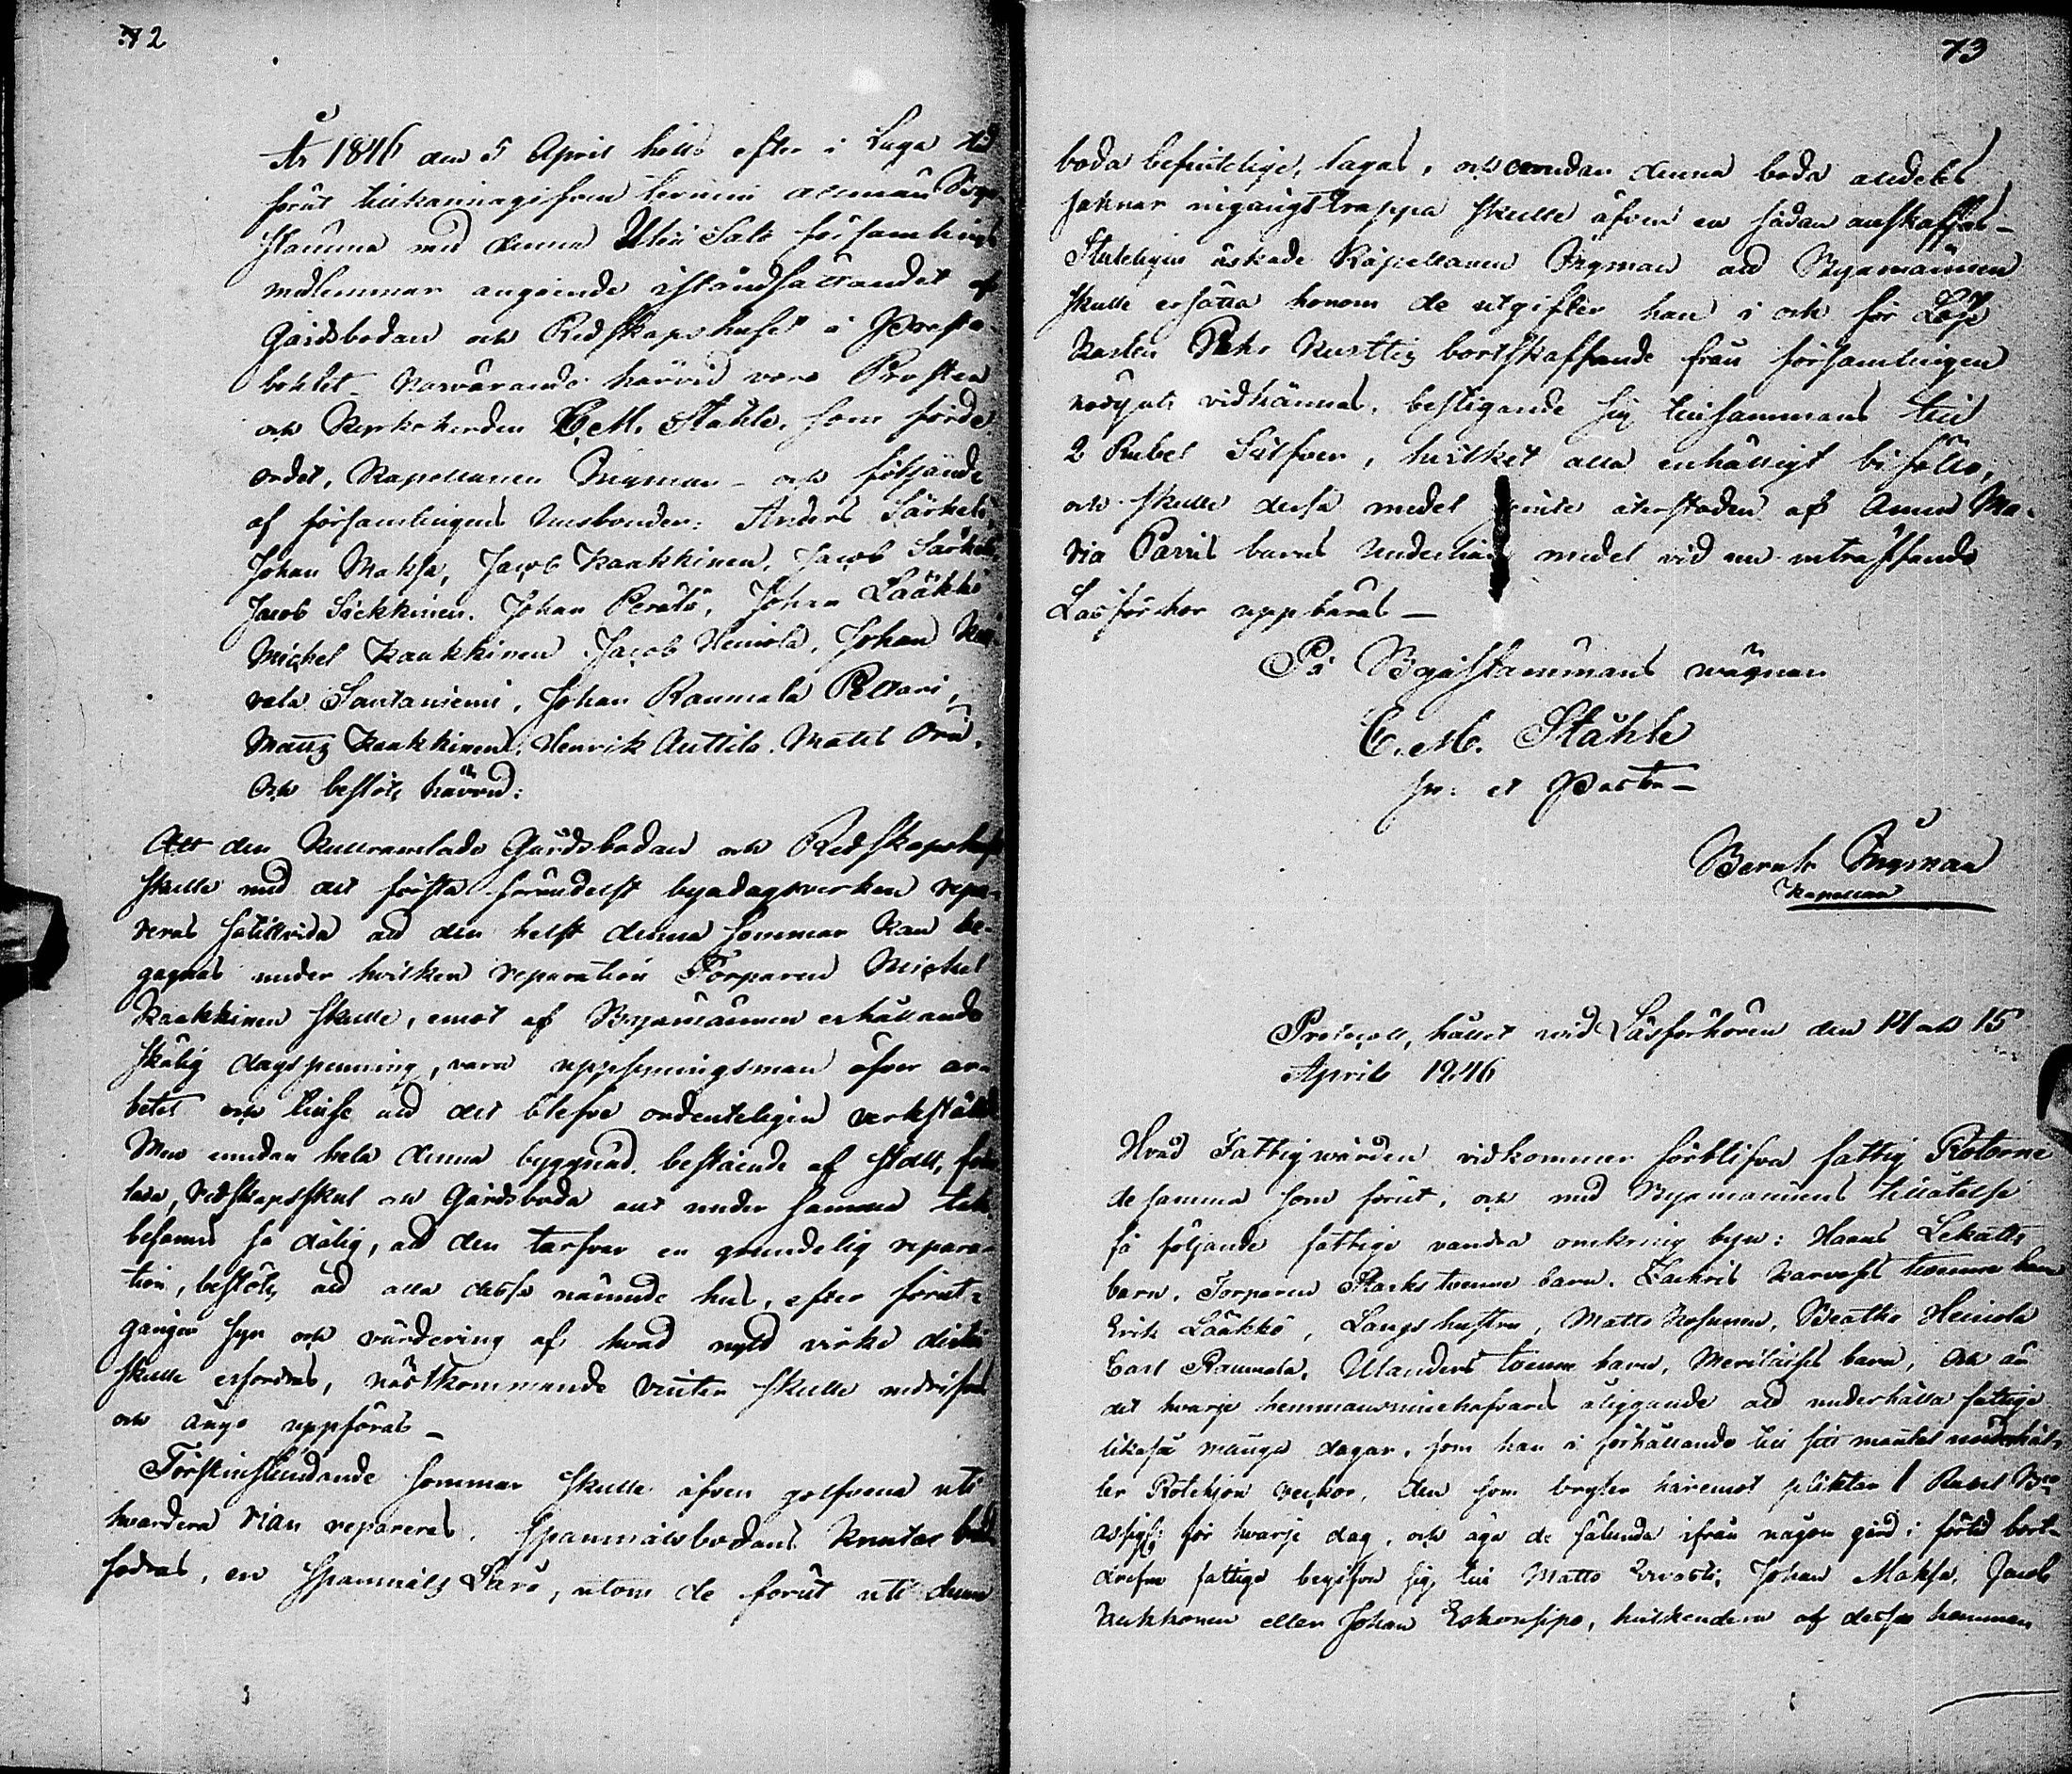 72
År 1846 den 5 April hölls efter i Laga tid
förut tillkännagifven termin allmän Bya
stämma med denna Salo församlings
medlemmar angående iståndsättandet af
Gårdsbodan och Redskapshuset å Prest
bohlet. Narvarande härvid voro Prosten
och Kyrkoherden C. M. Ståhle, som förde
ordet, Kapellanen Ingman – och följande
af församlingens husbönder: Anders Särkelä,
Johan Maksa, Jacob Kaakkinen, Jacob Särkelä
Jacob Säckkinen. Johan Perälä, Johan Lääkkö
Michel Kaakkinen. Jacob Heinola, Johan
vala Santaniemi, Johan Raumala Peltari,
Matts Kaakkinen, Henrik Anttila. Matts Ora.
Och beslöts härvid:
Att den kullramlade Gårdsbodan och Redskapshus
skulle med det första förmedelst byadagsverken repa-
reras såtillvida att den helst denna sommar kan be-
gagnas under hvilken reparation Torparen Michel
Kaakkinen skulle, emot af Byamännen erhållande
skälig dagspenning, vara uppsyningsman öfver ar-
betet och tillse att det blefve ordenteligen verkstäldt
Men emedan hela denna byggnad, bestående af stall,
lada, redskapsskjul och Gårdsboda allt under samma tak
befanns så dålig, att den tarfvar en grundelig repara-
tion, beslöts att alla dessa nämnde hus, efter förut-
gången syn och värdering af hvad nytt virke dertill
skulle erfordras, nästkommande vinter skulle nedrifvas
och ånyo uppföras –
Förstinstundande sommar skulle äfven golfvena uti
hvardera rian repareras. Spannmålsbodans knutar bräd
fodras, en Spannmåls Lare, utom de förut uti denna
73
boda befintelige, lagas, och emedan denna boda alldeles
saknar ingångstrappa skulle äfven en sådan anskaffas –
Slutteligen äskade Kapellanen Ingman att Byamännen
skulle ersätta honom de utgifter han i och för Lösk
karlen Pehr Kurttis bortskaffande från församlingen
nödgats vidkännas, bestigande sig tillsammans till
2 Rubel Silfver, hvilket alla enhälligt biföllo,
och skulle dessa medel återstoden af Anna Ma-
ria Parris barns Underhålls medel vid nu inträffande
Läsförhör uppbäras –
På Byastämmans wägnar
C. M. Ståhle
pr. et Pastor –
Bernh Ingman
Kapellan
Protocoll, hållet vid Läsförhören den 14 och 15
April 1846
Hvad Fattigwården vidkommer förblifva fattig Rotorne
de samma som förut, och med Byamännens tillåtelse
få följande fattige vandra omkring byn: Hanns Lekatts
barn, Torparen Starks tvenne barn. Zachris Karvosis tvenne barn
Erik Lääkkö, Langs hustru, Matts Kosunen, Beatha Heinola
Carl Raumala, Ulanders tvenne barn, Meriläises barn, och är
det hvarje hemmansinnehafvares åliggande att underhålla fattige
likaså många dagar, som han i förhållande till sitt mantal underhål-
ler Rotehjon veckor, den som bryter häremot pliktar 1 Rubel Bco
assign: för hvarje dag, och äga de sålunda ifrån någon gård i förtid bort-
drefne fattige begifva sig till Matts Ervasti, Johan Maksa, Jacob
Kukkonen eller Johan Eskonsipo, hvilkendera af dessa hemman